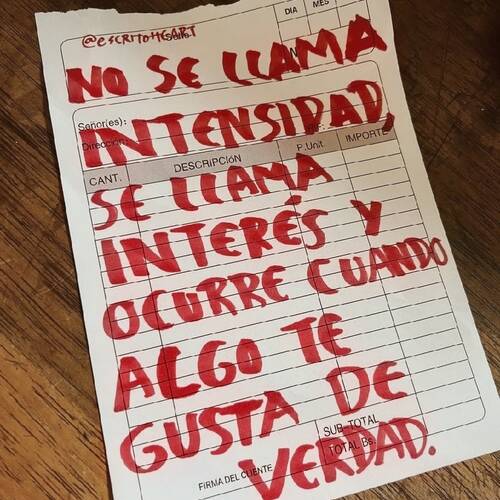 DIA MES
@escritohcart
NO SE LLAMA
Señor(es):
INTENSIDAD,
Dirección:
CANT. DESCRIPCIÓN P.Unit. IMPORTE
SE LLAMA
INTERÉS Y
OCURRE CUANDO
ALGO TE
GUSTA DE
SUB-TOTAL
TOTAL Bs.
VERDAD.
FIRMA DEL CLIENTE